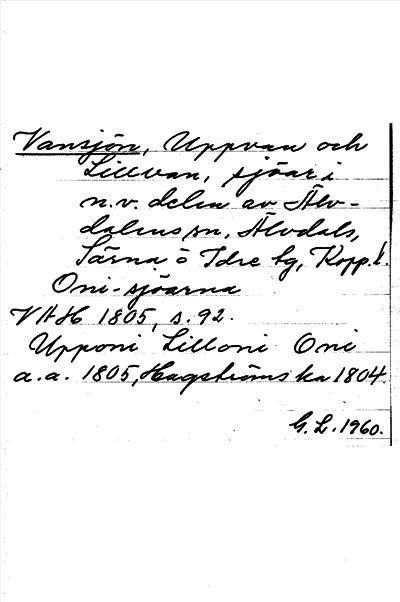 Vansjön, Uppvan och
Lillvan, sjöar i
n.v. delen av Älv-
dalens sn, Älvdals,
Särna o Idre tg, Kopp. l.
Oni-sjöarna
VAH 1805, s. 92.
Upponi Lilloni Oni
a.a. 1805, Hagströms ka 1804.
G. L. 1960.